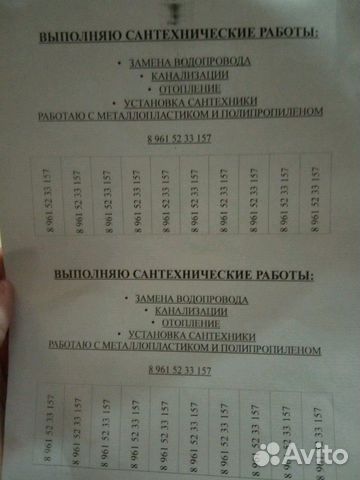 ВЫПОЛНЯЮ САНТЕХНИЧЕСКИЕ РАБОТЫ:
• ЗАМЕНА ВОДОПРОВОДА
• КАНАЛИЗАЦИИ
• ОТОПЛЕНИЕ
• УСТАНОВКА САНТЕХНИКИ
РАБОТАЮ С МЕТАЛЛОПЛАСТИКОМ И ПОЛИПРОПИЛЕНОМ
8 961 52 33 157
8 961 52 33 157
8 961 52 33 157
8 961 52 33 157
8 961 52 33 157
8 961 52 33 157
8 961 52 33 157
8 961 52 33 157
8 961 52 33 157
8 961 52 33 157
8 961 52 33 157
ВЫПОЛНЯЮ САНТЕХНИЧЕСКИЕ РАБОТЫ:
• ЗАМЕНА ВОДОПРОВОДА
• КАНАЛИЗАЦИИ
• ОТОПЛЕНИЕ
• УСТАНОВКА САНТЕХНИКИ
РАБОТАЮ С МЕТАЛЛОПЛАСТИКОМ И ПОЛИПРОПИЛЕНОМ
8 961 52 33 157
8 961 52 33 157
8 961 52 33 157
8 961 52 33 157
8 961 52 33 157
8 961 52 33 157
8 961 52 33 157
8 961 52 33 157
8 961 52 33 157
8 961 52 33 157
8 961 52 33 157
Avito